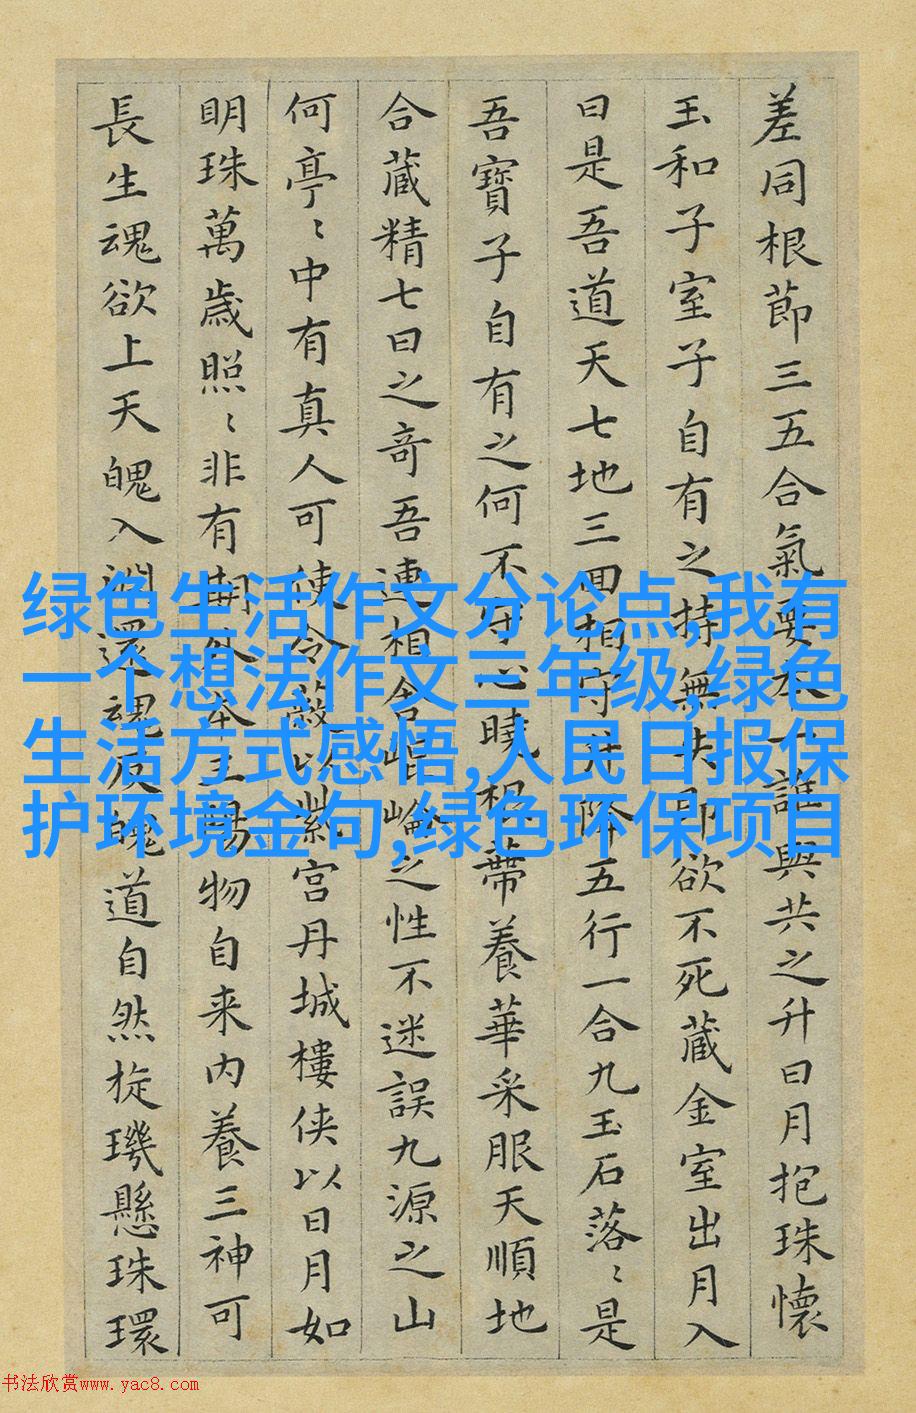 差同根節三五合氣要本一誰與共之升日月抱珠懷
玉和子室子自有之持無失即欲不死藏金室出月入
日是吾道天七地三回相守升降五行一合九玉石落〻是
吾寶子自有之何不守心曉根蒂養華采服天順地
合藏精七日之奇吾連相舍崐崙之性不迷誤九源之山
何亭〻中有真人可使令蔽以紫宮丹城樓侠以日月如
明珠萬歲照〻非有期外本三陽物自来内養三神可
長生魂欲上天魄入淵還魂反魄道自然旋璣懸珠環
绿色生活作文分论点,我有
一个想法作文三年级,绿色
生活方式感悟,人民日报保
护环境金句,绿色环保项目
书法欣赏www.yac8.com